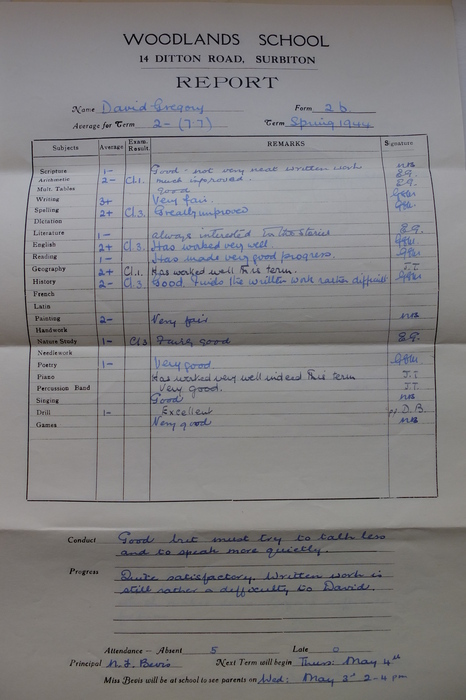 WOODLANDS SCHOOL
14 DITTON ROAD, SURBITON
REPORT
Name David Gregory Form 2 b
Average for Term 2- (7.7) Term Spring 1944
Subjects Average Exam. Result. REMARKS Signature
Scripture 1- Good - not very neat written work
Arithmetic 2- Cl.1. much improved. E.G.
Mult. Tables good E.G.
Writing 3+ Very fair.
Spelling 2+ Cl.3. Greatly improved
Dictation
Literature 1- always interested in the stories E.G.
English 2+ Cl.3. Has worked very well.
Reading 1- Has made very good progress.
Geography 2+ Cl.1. Has worked well this term. J.T.
History 2- Cl.3. Good. Finds the written work rather difficult
French
Latin
Painting 2- Very fair
Handwork
Nature Study 1- Cl3 Fairly good E.G.
Needlework
Poetry 1- Very good.
Piano Has worked very well indeed this term J.T.
Percussion Band Very good. J.T.
Singing Good
Drill 1- Excellent D.B.
Games Very good
Conduct Good but must try to talk less
and to speak more quietly.
Progress Quite satisfactory. Written work is
still rather a difficulty to David.
Attendance — Absent 5 Late 0
Principal N. F. Bevis Next Term will begin Thurs: May 4th
Miss Bevis will be at school to see parents on Wed: May 3rd 2-4 pm